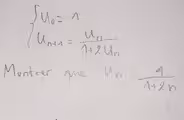 { U₀ = 1
U_{n+1} = U_n / (1+2U_n)
Montrer que U_n 1 / (1+2n)